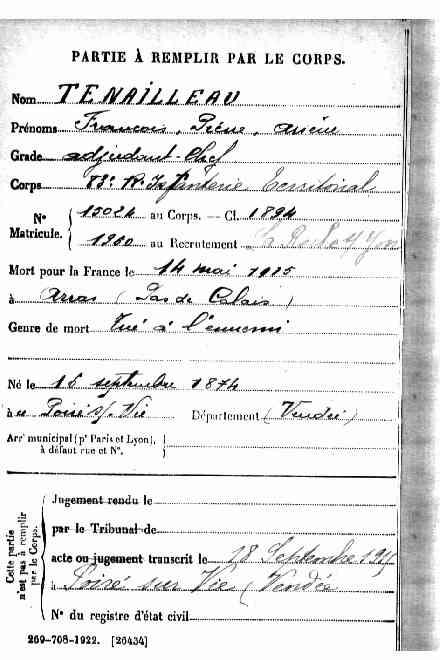 PARTIE À REMPLIR PAR LE CORPS.
Nom TENAILLEAU
Prénoms François, Pierre,
Grade adjudant-Chef
Corps 83e R. Infanterie Territorial
N° Matricule. 15024 au Corps. — Cl. 1894
1960 au Recrutement La Roche s/Yon
Mort pour la France le 14 mai 1915
à Arras (Pas de Calais)
Genre de mort Tué à l'ennemi
Né le 15 septembre 1874
à Poiré s/ Vie Département (Vendée)
Arrt municipal (pr Paris et Lyon),
à défaut rue et N°.
Cette partie n'est pas à remplir par le Corps.
Jugement rendu le
par le Tribunal de
acte ou jugement transcrit le 18 Septembre 1915
à Poiré sur Vie (Vendée
N° du registre d'état civil
269-708-1922. [26434]